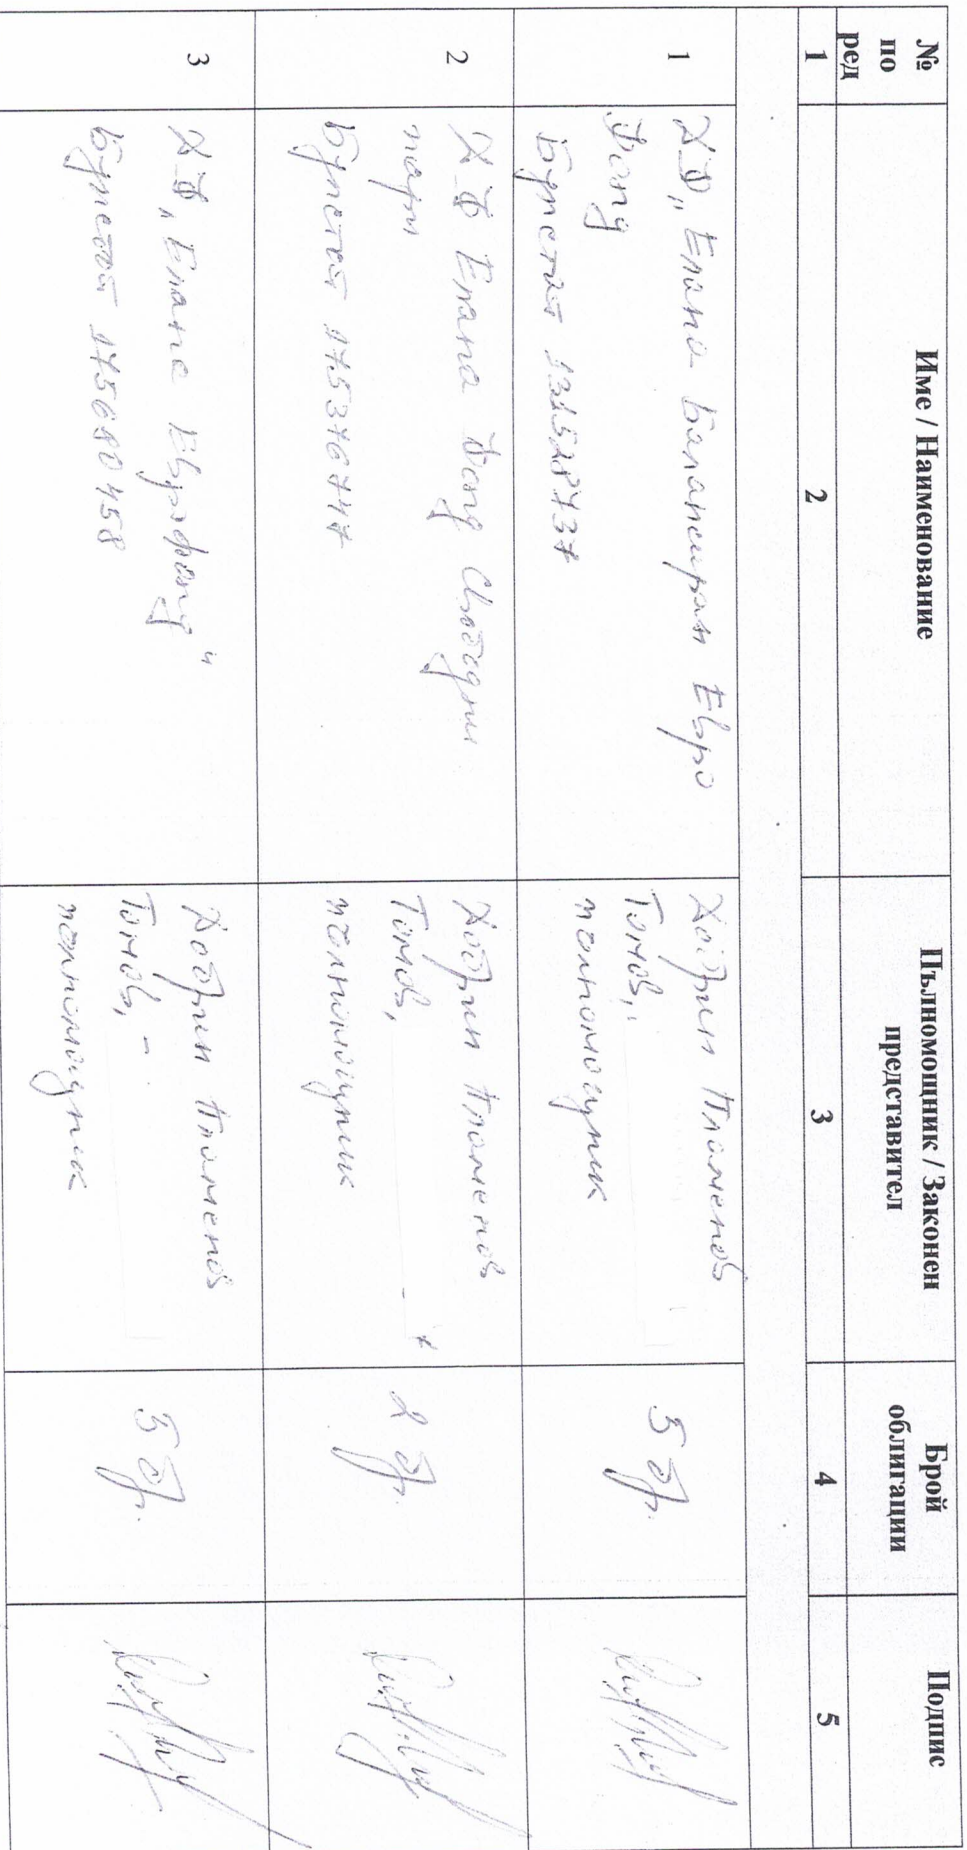 № по ред | Име / Наименование | Пълномощник / Законен представител | Брой облигации | Подпис
1 | 2 | 3 | 4 | 5
1
ХФ „Елана Балансиран Евро
Фонд
Булстат 131528737
Пламенов
Томов,
пълномощник
5 бр.
2
ХФ Елана Фонд Свободни
пари
Булстат 175376747
Пламенов
Томов,
пълномощник
2 бр.
3
ХФ „Елана Еврофонд"
Булстат 175680458
Пламенов
Томов, -
пълномощник
5 бр.